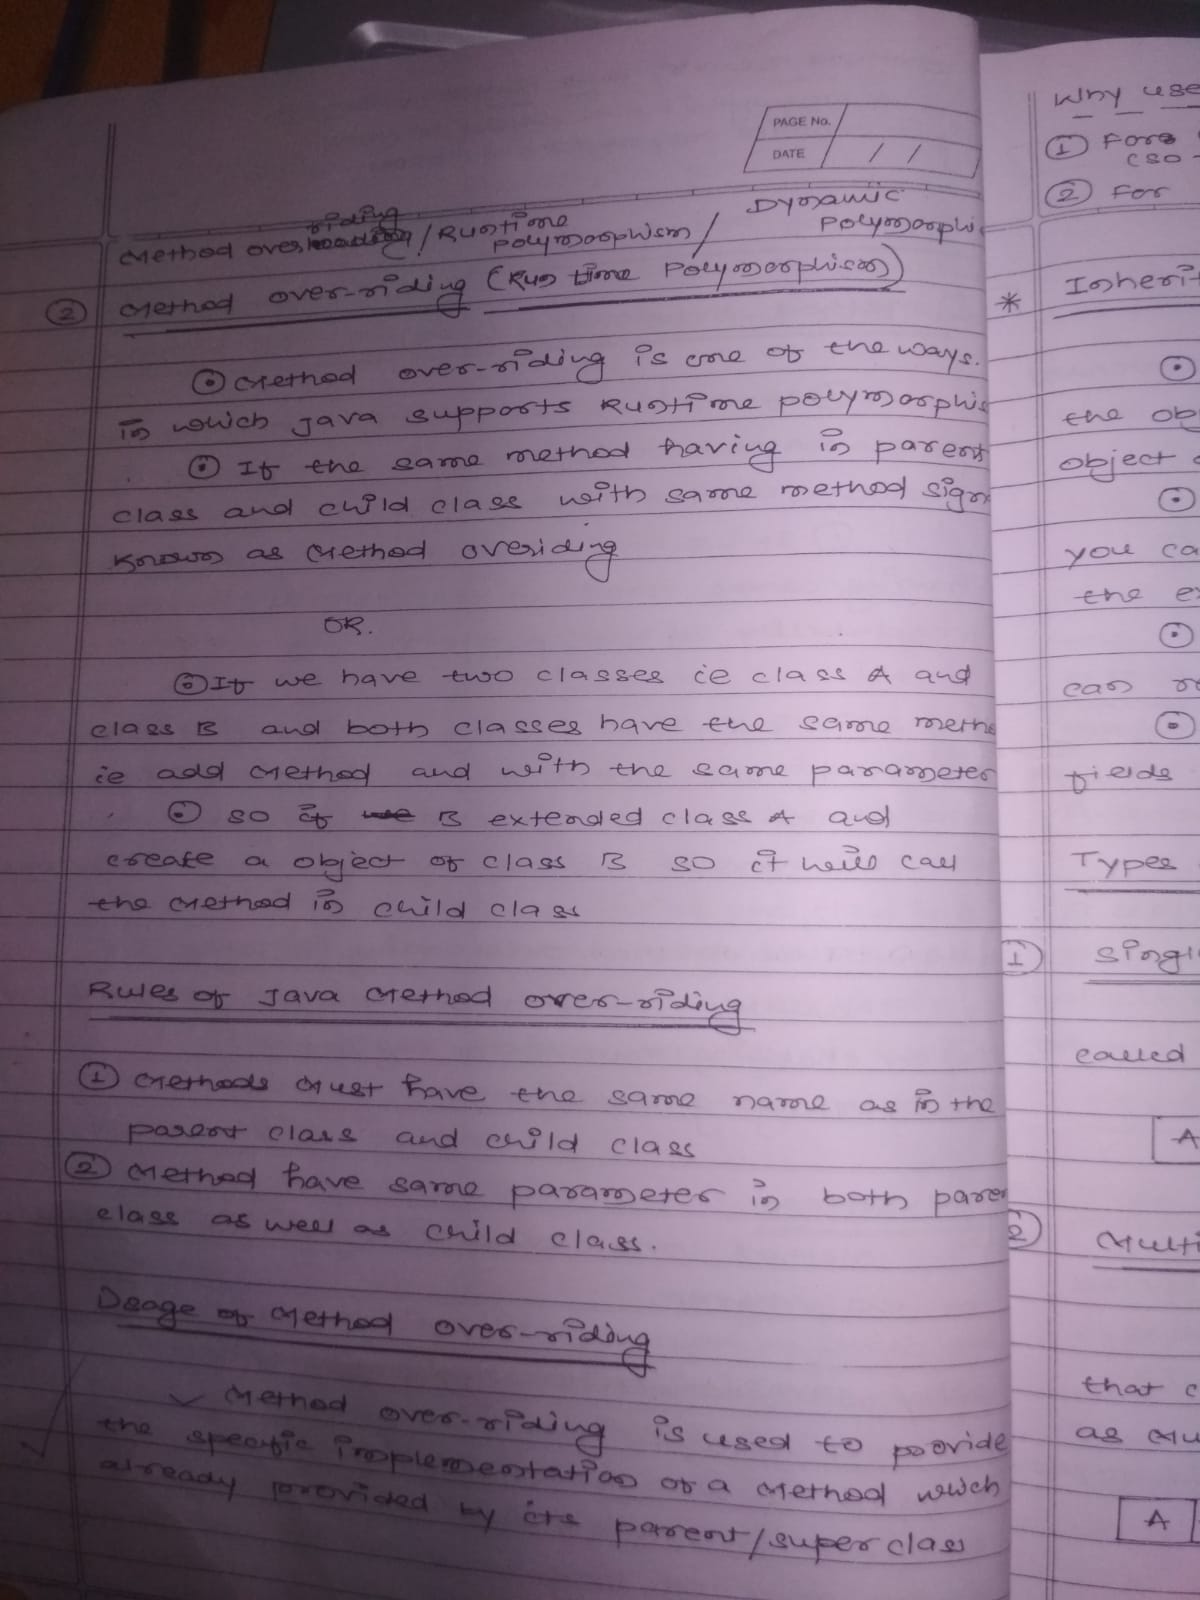 PAGE No.
DATE / /
riding
Method over / Runtime polymorphism / Dynamic polymorphis
② Method over-riding (Run time Polymorphism)
⊙ Method over-riding is one of the ways.
in which Java supports Runtime polymorphis
⊙ If the same method having in parent
class and child class with same method sign
known as Method overiding
OR.
⊙ If we have two classes ie class A and
class B and both classes have the same metho
ie add Method and with the same parameter
⊙ so if B extended class A and
create a object of class B so it will call
the Method in child class
Rules of Java Method over-riding
① Methods Must have the same name as in the
parent class and child class
② Method have same parameter in both paren
class as well as child class.
Usage of Method over-riding
✓ Method over-riding is used to provide
the specific implementation of a Method which
already provided by its parent/super class
Why use
① Fore
(SO-
② For
* Inherit
⊙
the obj
object
⊙
you ca
the ex
⊙
can re
⊙
fields
Types
① Singl
called
A
② Multi
that c
as Mu
A